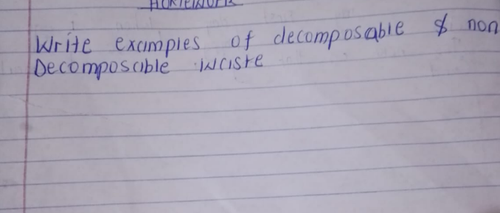 HOMEWORK
Write examples of decomposable & non
Decomposable waste